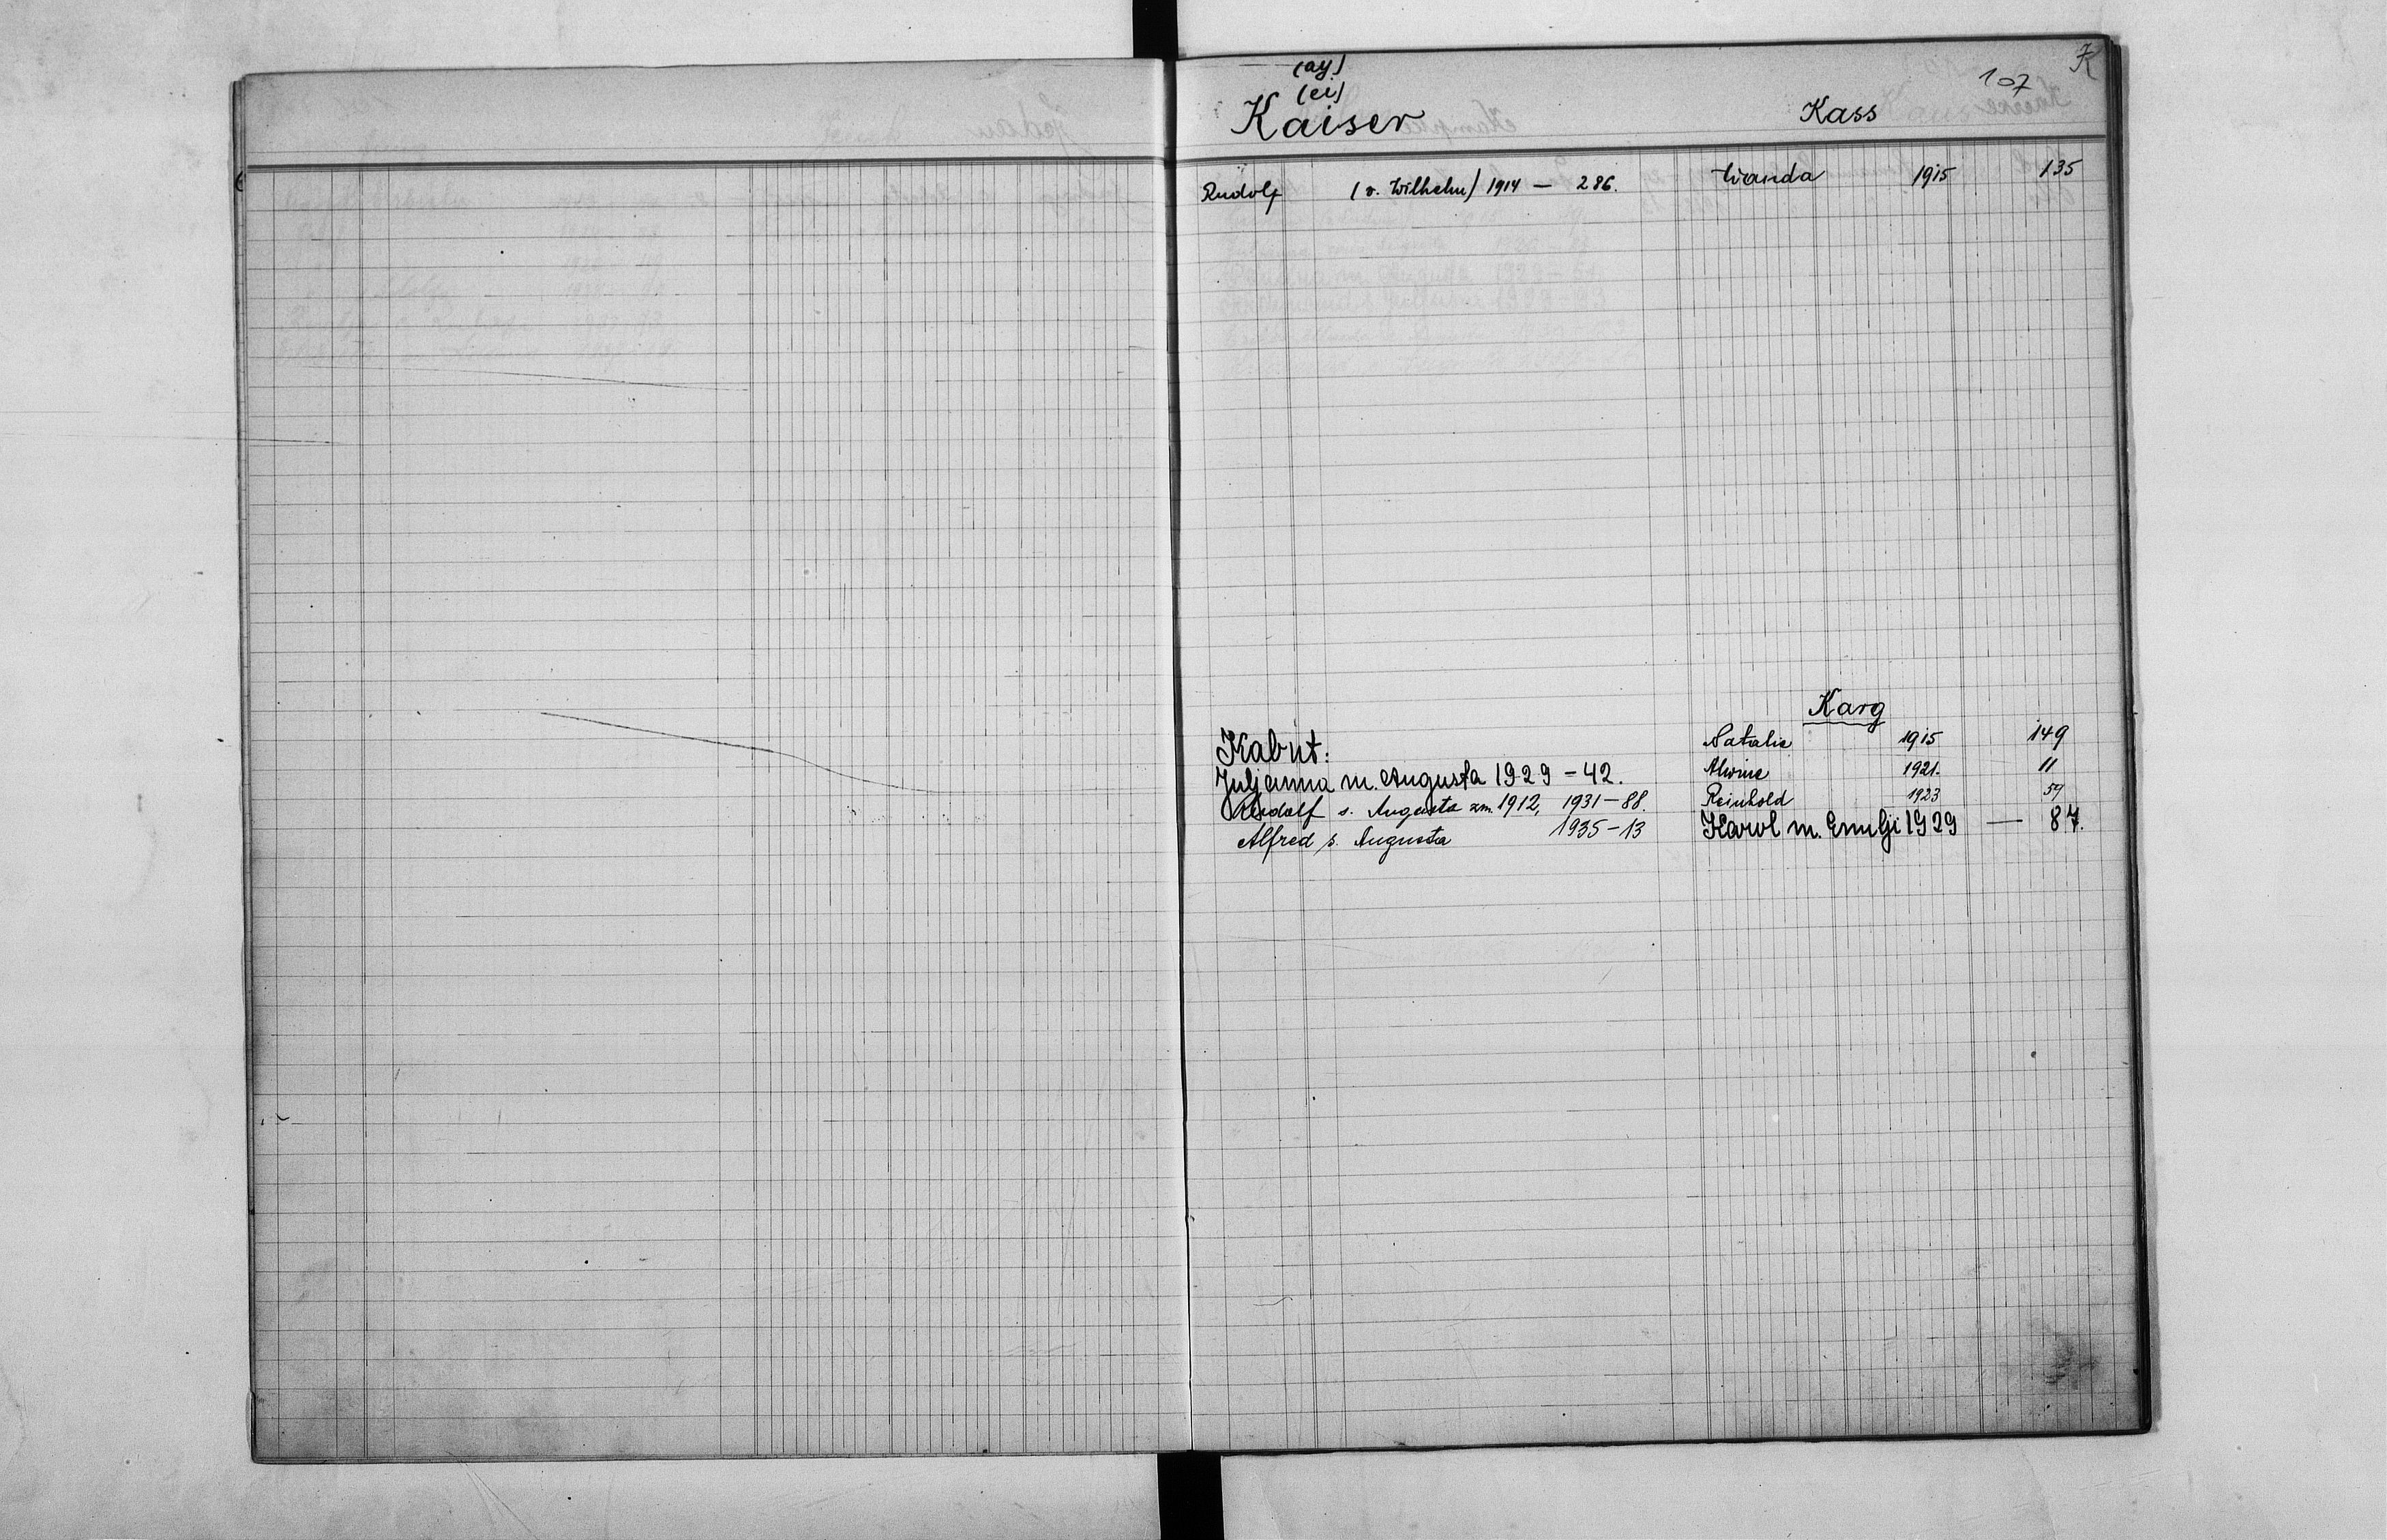 K
107
(ay)
(ei)
Kaiser
Rudolf (v. Wilhelm) 1914 — 286.
Kabut:
Juljanna m. Augusta 1929 – 42.
Rudolf s. Augusta zm. 1912, 1931 – 88.
Alfred s. Augusta 1935 – 13
Kass
Wanda 1915 135
Karg
Natalie 1915 149
Alwine 1921. 11
Reinhold 1923 59
Karol m. Emilji 1929 — 87.